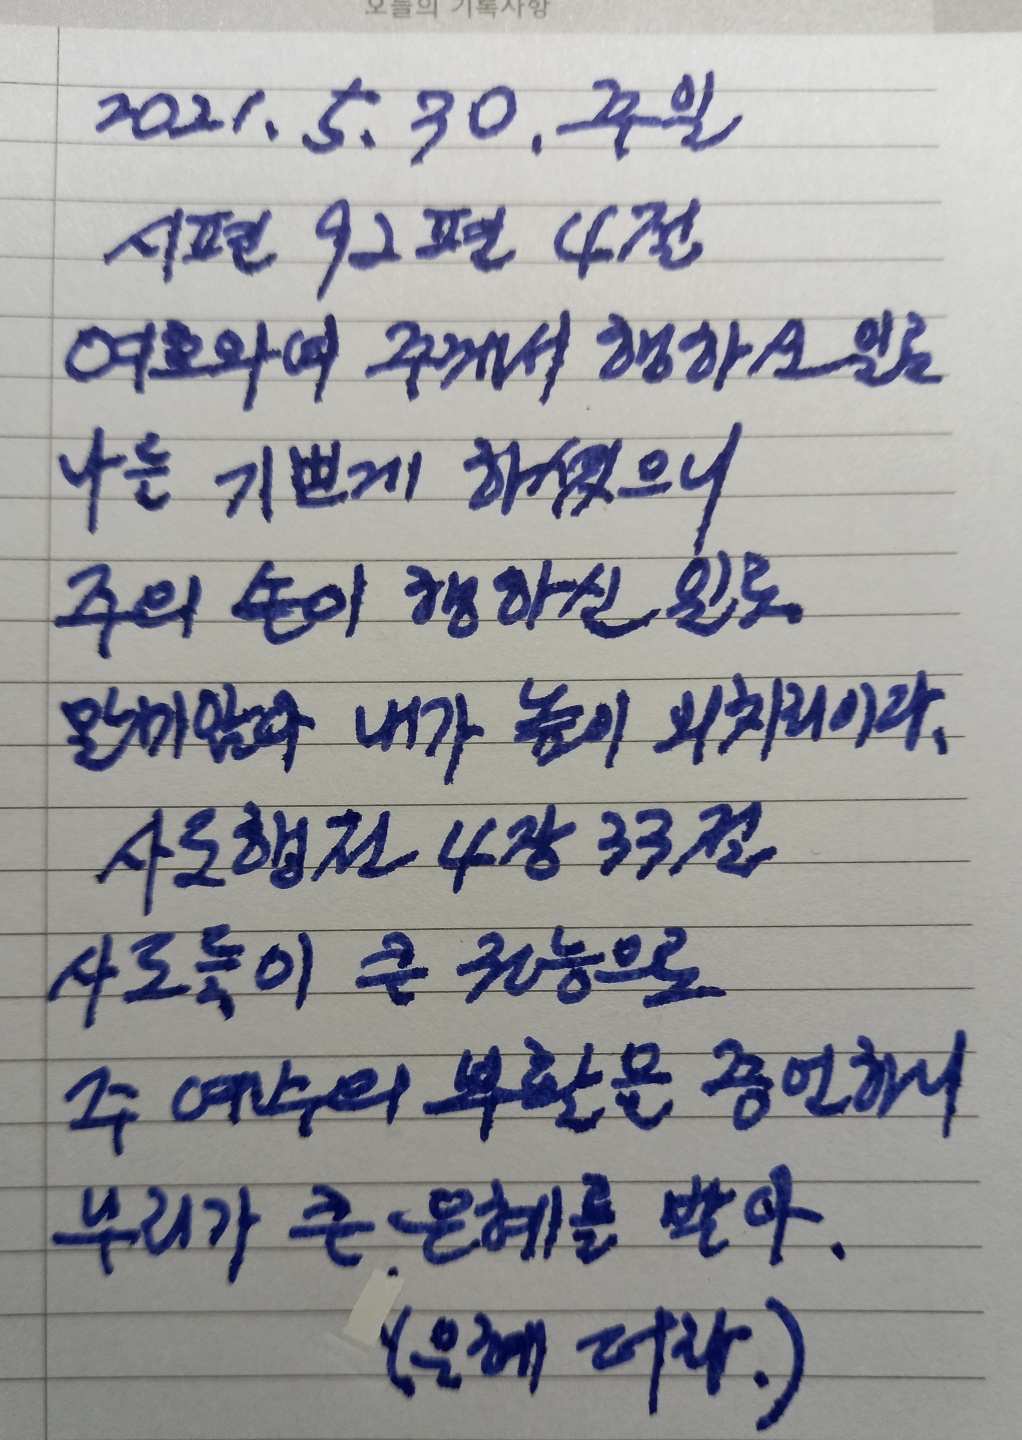 오늘의 기록사항
2021. 5. 30. 주일
시편 92편 4절
여호와여 주께서 행하신 일로
나를 기쁘게 하셨으니
주의 손이 행하신 일로
말미암아 내가 높이 외치리이다.
사도행전 4장 33절
사도들이 큰 권능으로
주 예수의 부활을 증언하니
무리가 큰 은혜를 받아.
(은혜